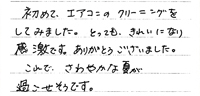 初めて、エアコンの クリーニングを
してみました。とっても、きれいになり
感激です。ありがとうございました。
これで、さわやかな夏が
過ごせそうです。